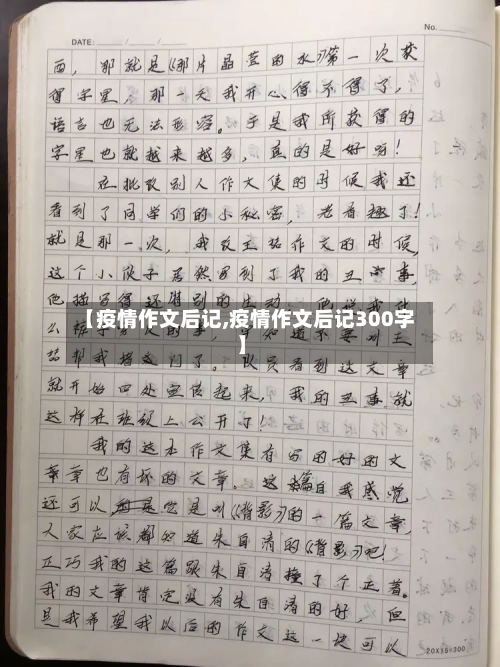 No.
DATE: / /
西，那就是《那片晶莹的水》第一次获
得字星，那一天我开心得不得了，
语言也无法形容。于是我所获得的
字星也就越来越多，真的是好呀！
在批改别人作文集的时候我还
看到了同学们的小秘密，老有趣了！
就是那一次，我改王 作文的时候，
这个小伙子居然写到了我的丑事，
他描写得还特别的生动，他说我什
【疫情作文后记,疫情作文后记300字
】
我看到这文章
就开始四处宣传起来，我的丑事就
这样在班级上公开了！
我的这本作文集有写的好的文
章也有坏的文章。这篇自我感觉
还可以 是叫《背影》的一篇文章，
人家应该都知道朱自清的《背影》吧！
正巧我的这篇跟朱自清撞了个正着。
我的文章肯定没有朱自清的好，但
是我希望我以后的作文这一块可以
20X15=300